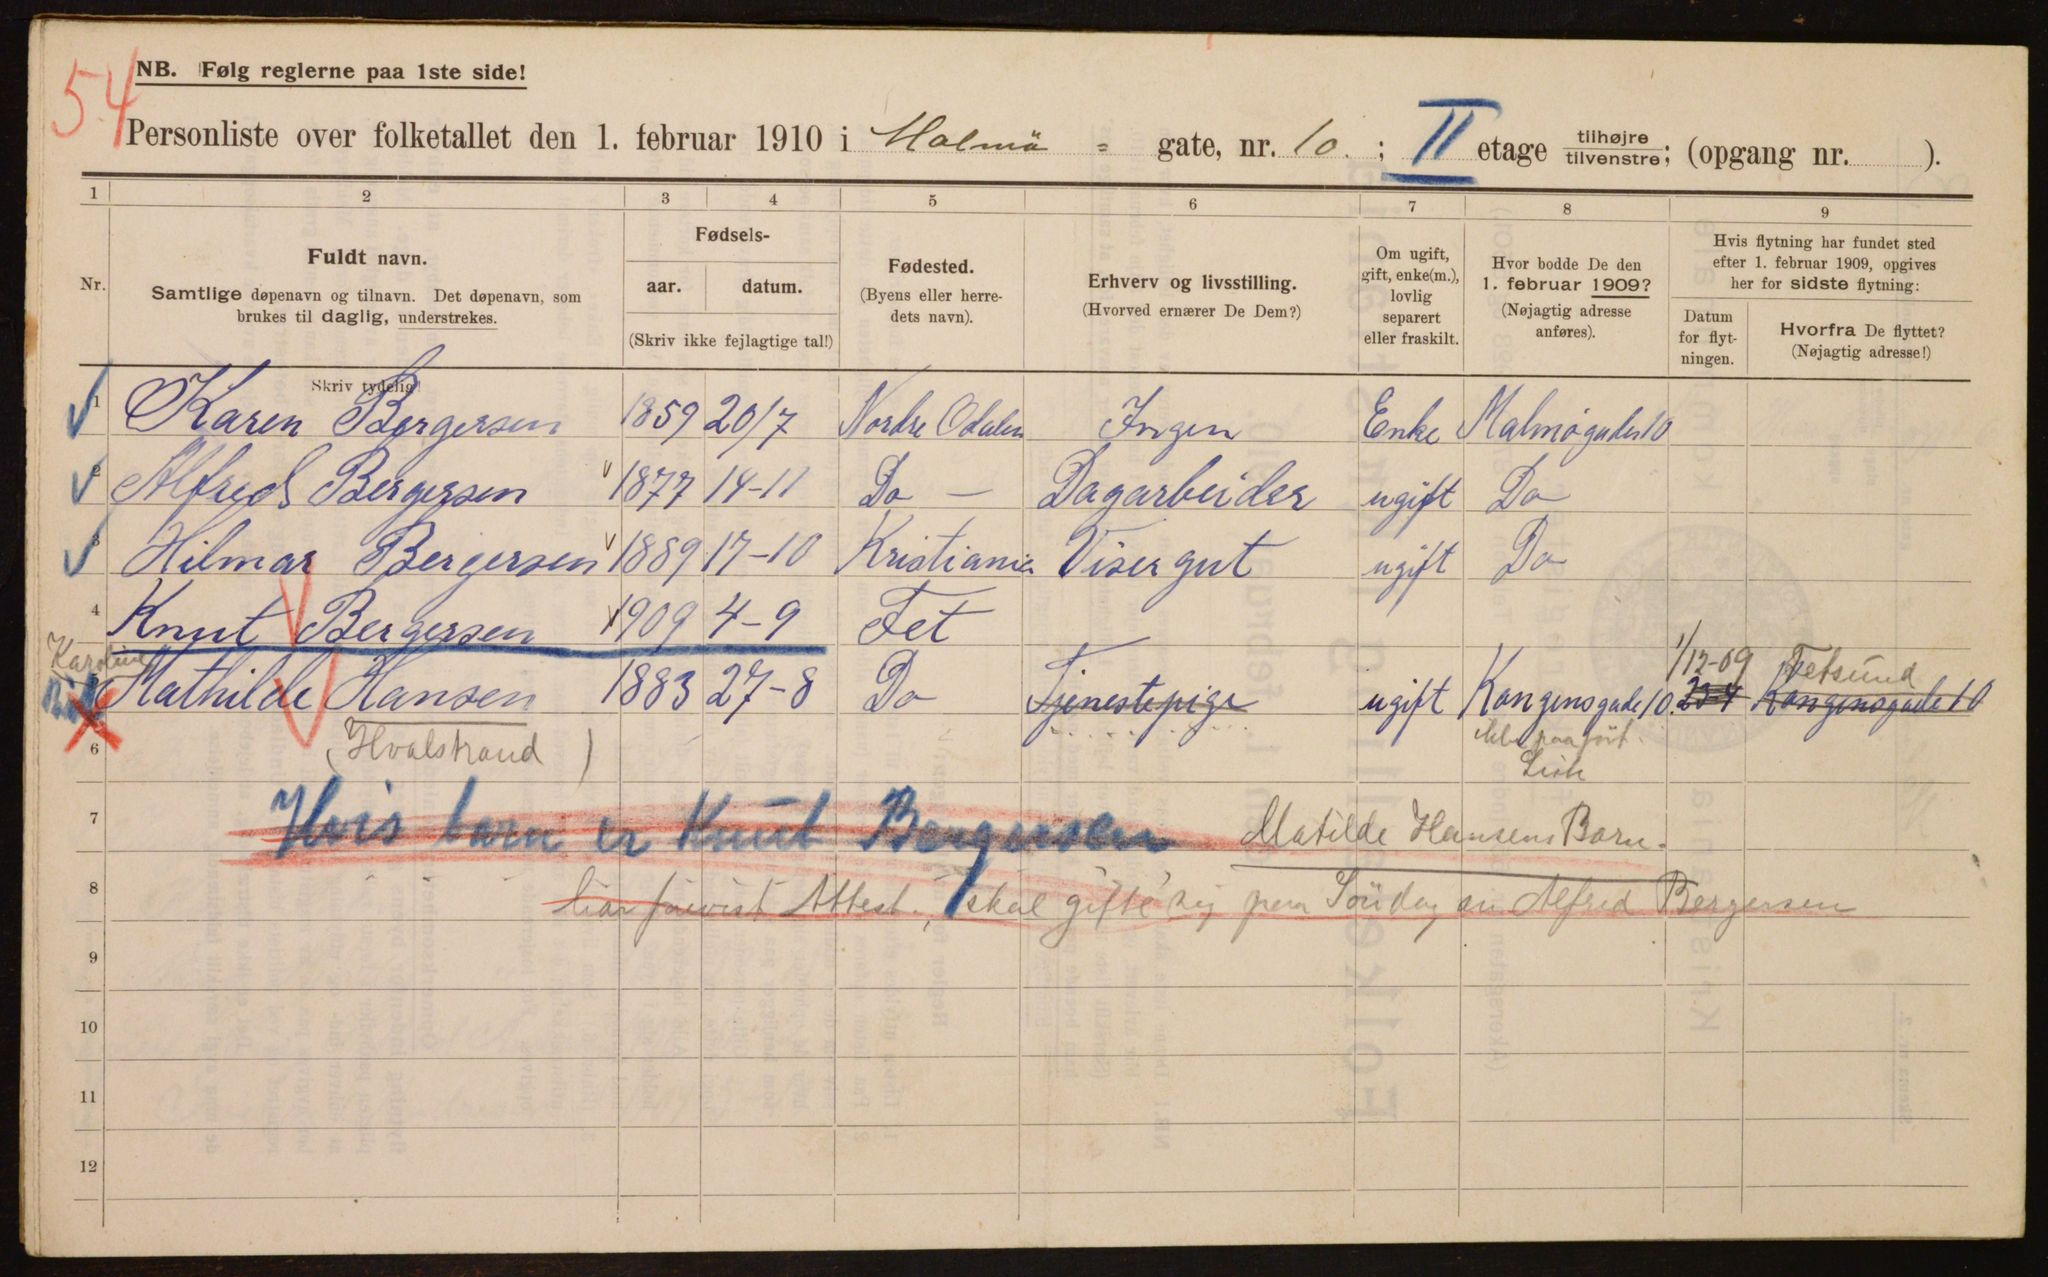 54
NB. Følg reglerne paa 1ste side!
Personliste over folketallet den 1. februar 1910 i Malmö = gate, nr. 10. ; II etage tilhøjre / tilvenstre; (opgang nr. ).
1 2 3 4 5 6 7 8 9
Nr.
Fuldt navn.
Samtlige døpenavn og tilnavn. Det døpenavn, som brukes til daglig, understrekes.
Skriv tydelig!
Fødsels-
aar. datum.
(Skriv ikke fejlagtige tal!)
Fødested.
(Byens eller herredets navn).
Erhverv og livsstilling.
(Hvorved ernærer De Dem?)
Om ugift, gift, enke(m.), lovlig separert eller fraskilt.
Hvor bodde De den 1. februar 1909?
(Nøjagtig adresse anføres).
Hvis flytning har fundet sted efter 1. februar 1909, opgives her for sidste flytning:
Datum for flytningen.
Hvorfra De flyttet?
(Nøjagtig adresse!)
1 Karen Bergersen 1859 20/7 Nordre Odalen Ingen Enke Malmøgaden 10
2 Alfred Bergersen 1877 14-11 Do — Dagarbeider ugift Do
3 Hilmar Bergersen 1889 17-10 Kristiania Visergut ugift Do
4 Knut Bergersen 1909 4-9 Fet
Karoline 1/12-09 Fetsund
Mathilde Hansen 1883 27-8 Do Tjenestepige ugift Kongensgade 10. 23-4 Kongensgade 10
6 (Hvalstrand)
7 Hvis barn er Knut Bergersen Matilde Hansens Barn.
8 har forevist Attest., skal gifte sig paa Söndag m Alfred Bergersen
9
10
11
12